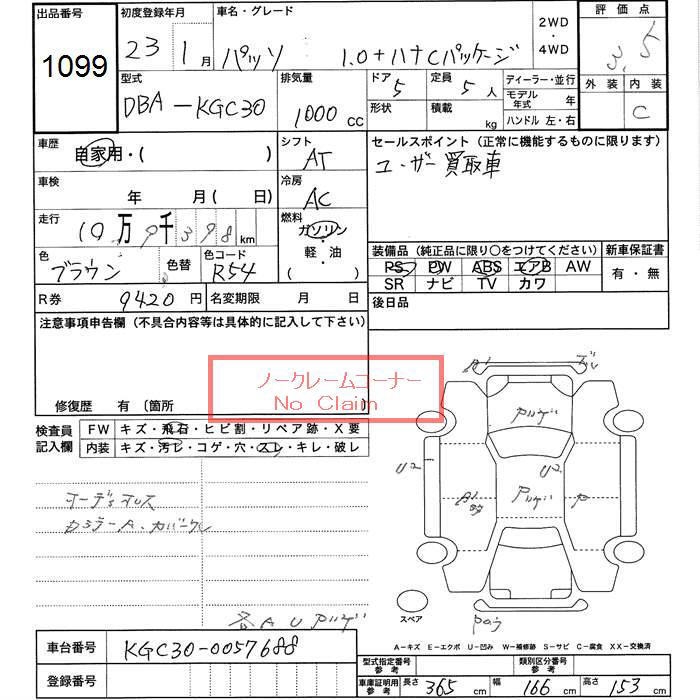 出品番号 初度登録年月 車名・グレード 2WD・4WD 評価点
1099 23 1月 パッソ 1.0+ハナCパッケージ 3.5
型式 排気量 ドア 定員 ディーラー・並行 外装 内装
DBA-KGC30 1000 CC 5 5人 モデル年式 年 C
形状 積載 kg ハンドル 左・右
車歴 自家用・( ) シフト AT セールスポイント (正常に機能するものに限ります)
ユーザー買取車
車検 年 月( 日) 冷房 AC
走行 10万9千398km 燃料 ガソリン・軽・油 ( )
装備品 (純正品に限り〇をつけてください) 新車保証書
色 ブラウン 色替 色コード R54
PS PW ABS エアB AW 有・無
SR ナビ TV カワ
R券 9420円 名変期限 月 日 後日品
注意事項申告欄 (不具合内容等は具体的に記入して下さい)
ノークレームコーナー
No Claim
修復歴 有 〔箇所
検査員記入欄 FW キズ・飛石・ヒビ割・リペア跡・X要
内装 キズ・汚レ・コゲ・穴・スレ・キレ・破レ
オーディオレス
各AUアリ
A1
U2 U2
P
スペア
A-キズ E-エクボ U-凹み W-補修跡 S-サビ C-腐食 XX-交換済
車台番号 KGC30-0057688
登録番号
型式指定番号 参考 類別区分番号 参考
車庫証明用参考 長さ 365cm 幅 166cm 高さ 153cm